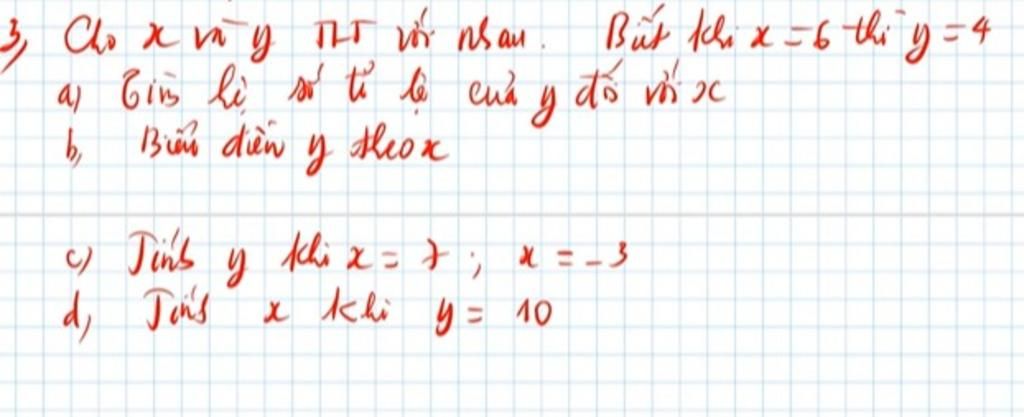 3, Cho x và y TLT với nhau. Biết khi x = 6 thì y = 4
a) Tìm hệ số tỉ lệ của y đối với x
b, Biểu diễn y theo x
c) Tính y khi x = 7 ; x = -3
d, Tính x khi y = 10